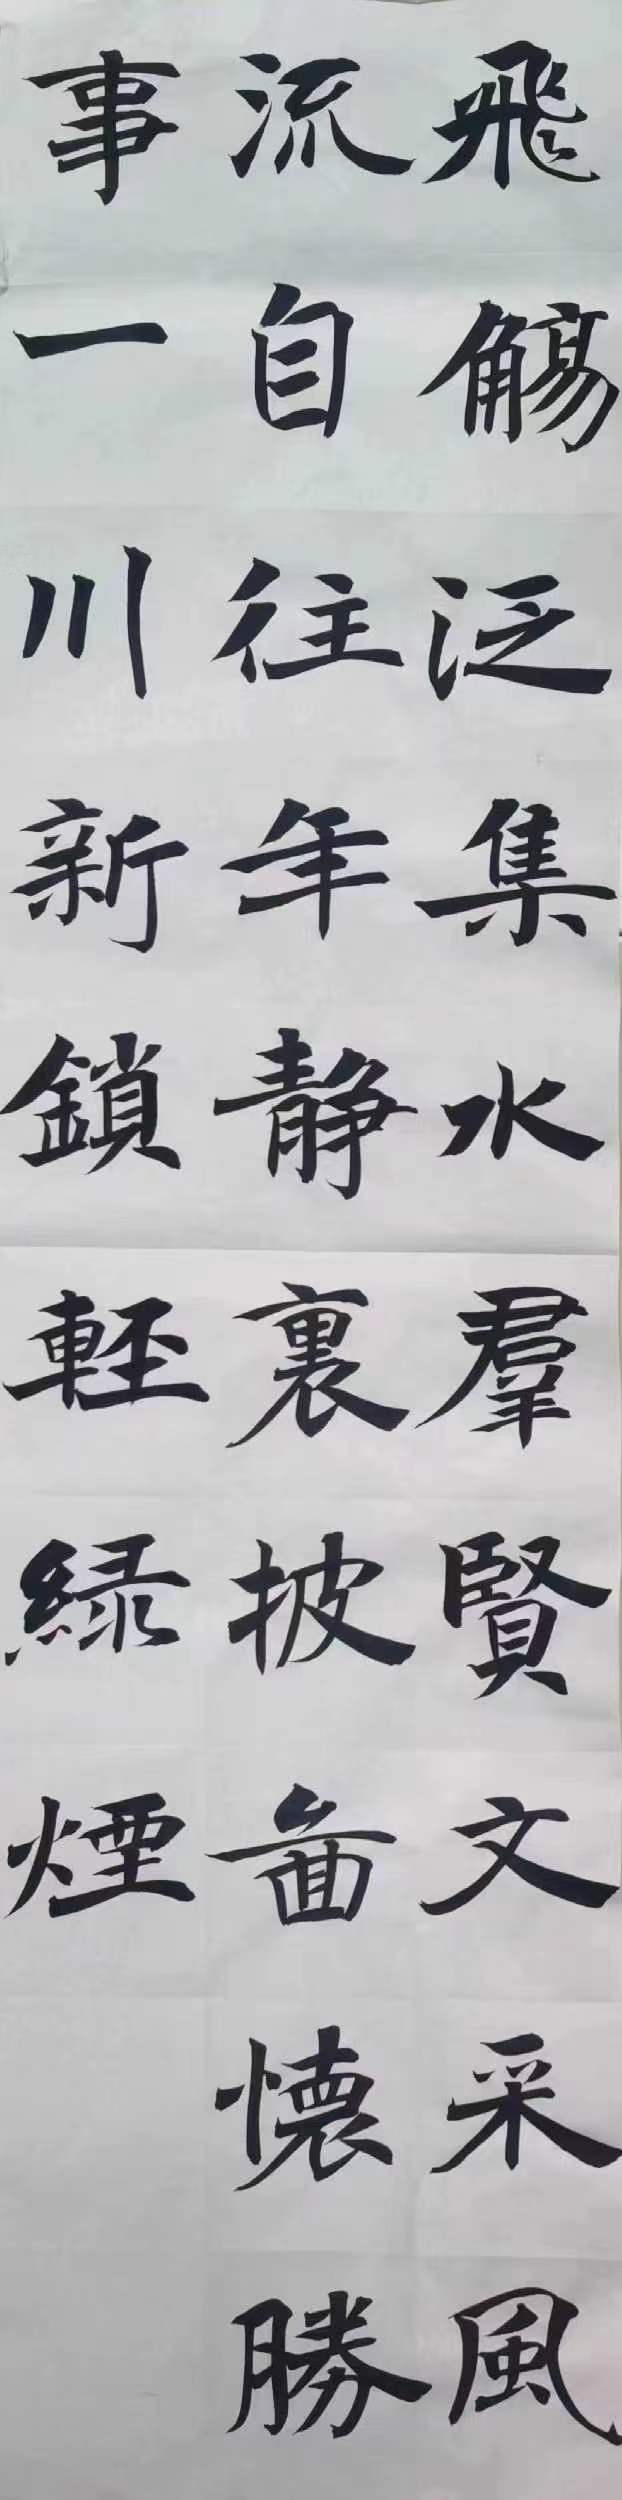 飛觴泛集水羣賢文采風
流自往年靜裏披畫懷勝
事一川新鎖輕綠煙